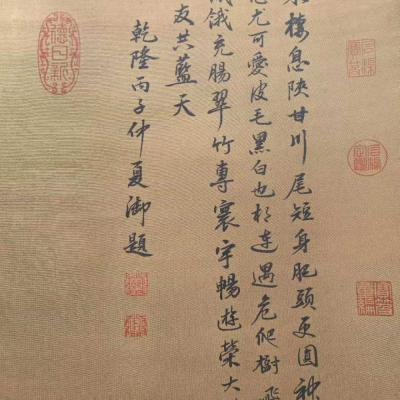 棲息陝甘川尾短身肥頭更圓神
尤可愛皮毛黑白也相連遇危爬樹
餓充腸翠竹專寰宇暢遊榮大
友共藍天
乾隆丙子仲夏御題
德日新